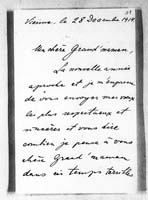 Vienne, le 28 Decembre 1914.
Ma chère Grand'maman,
La nouvelle année
aproche et je m'empresse
de vous envoyer mes voeux
les plus respectueux et
sincères et vous dire
combien je pense à vous
chère Grand'maman
dans ces temps terribles